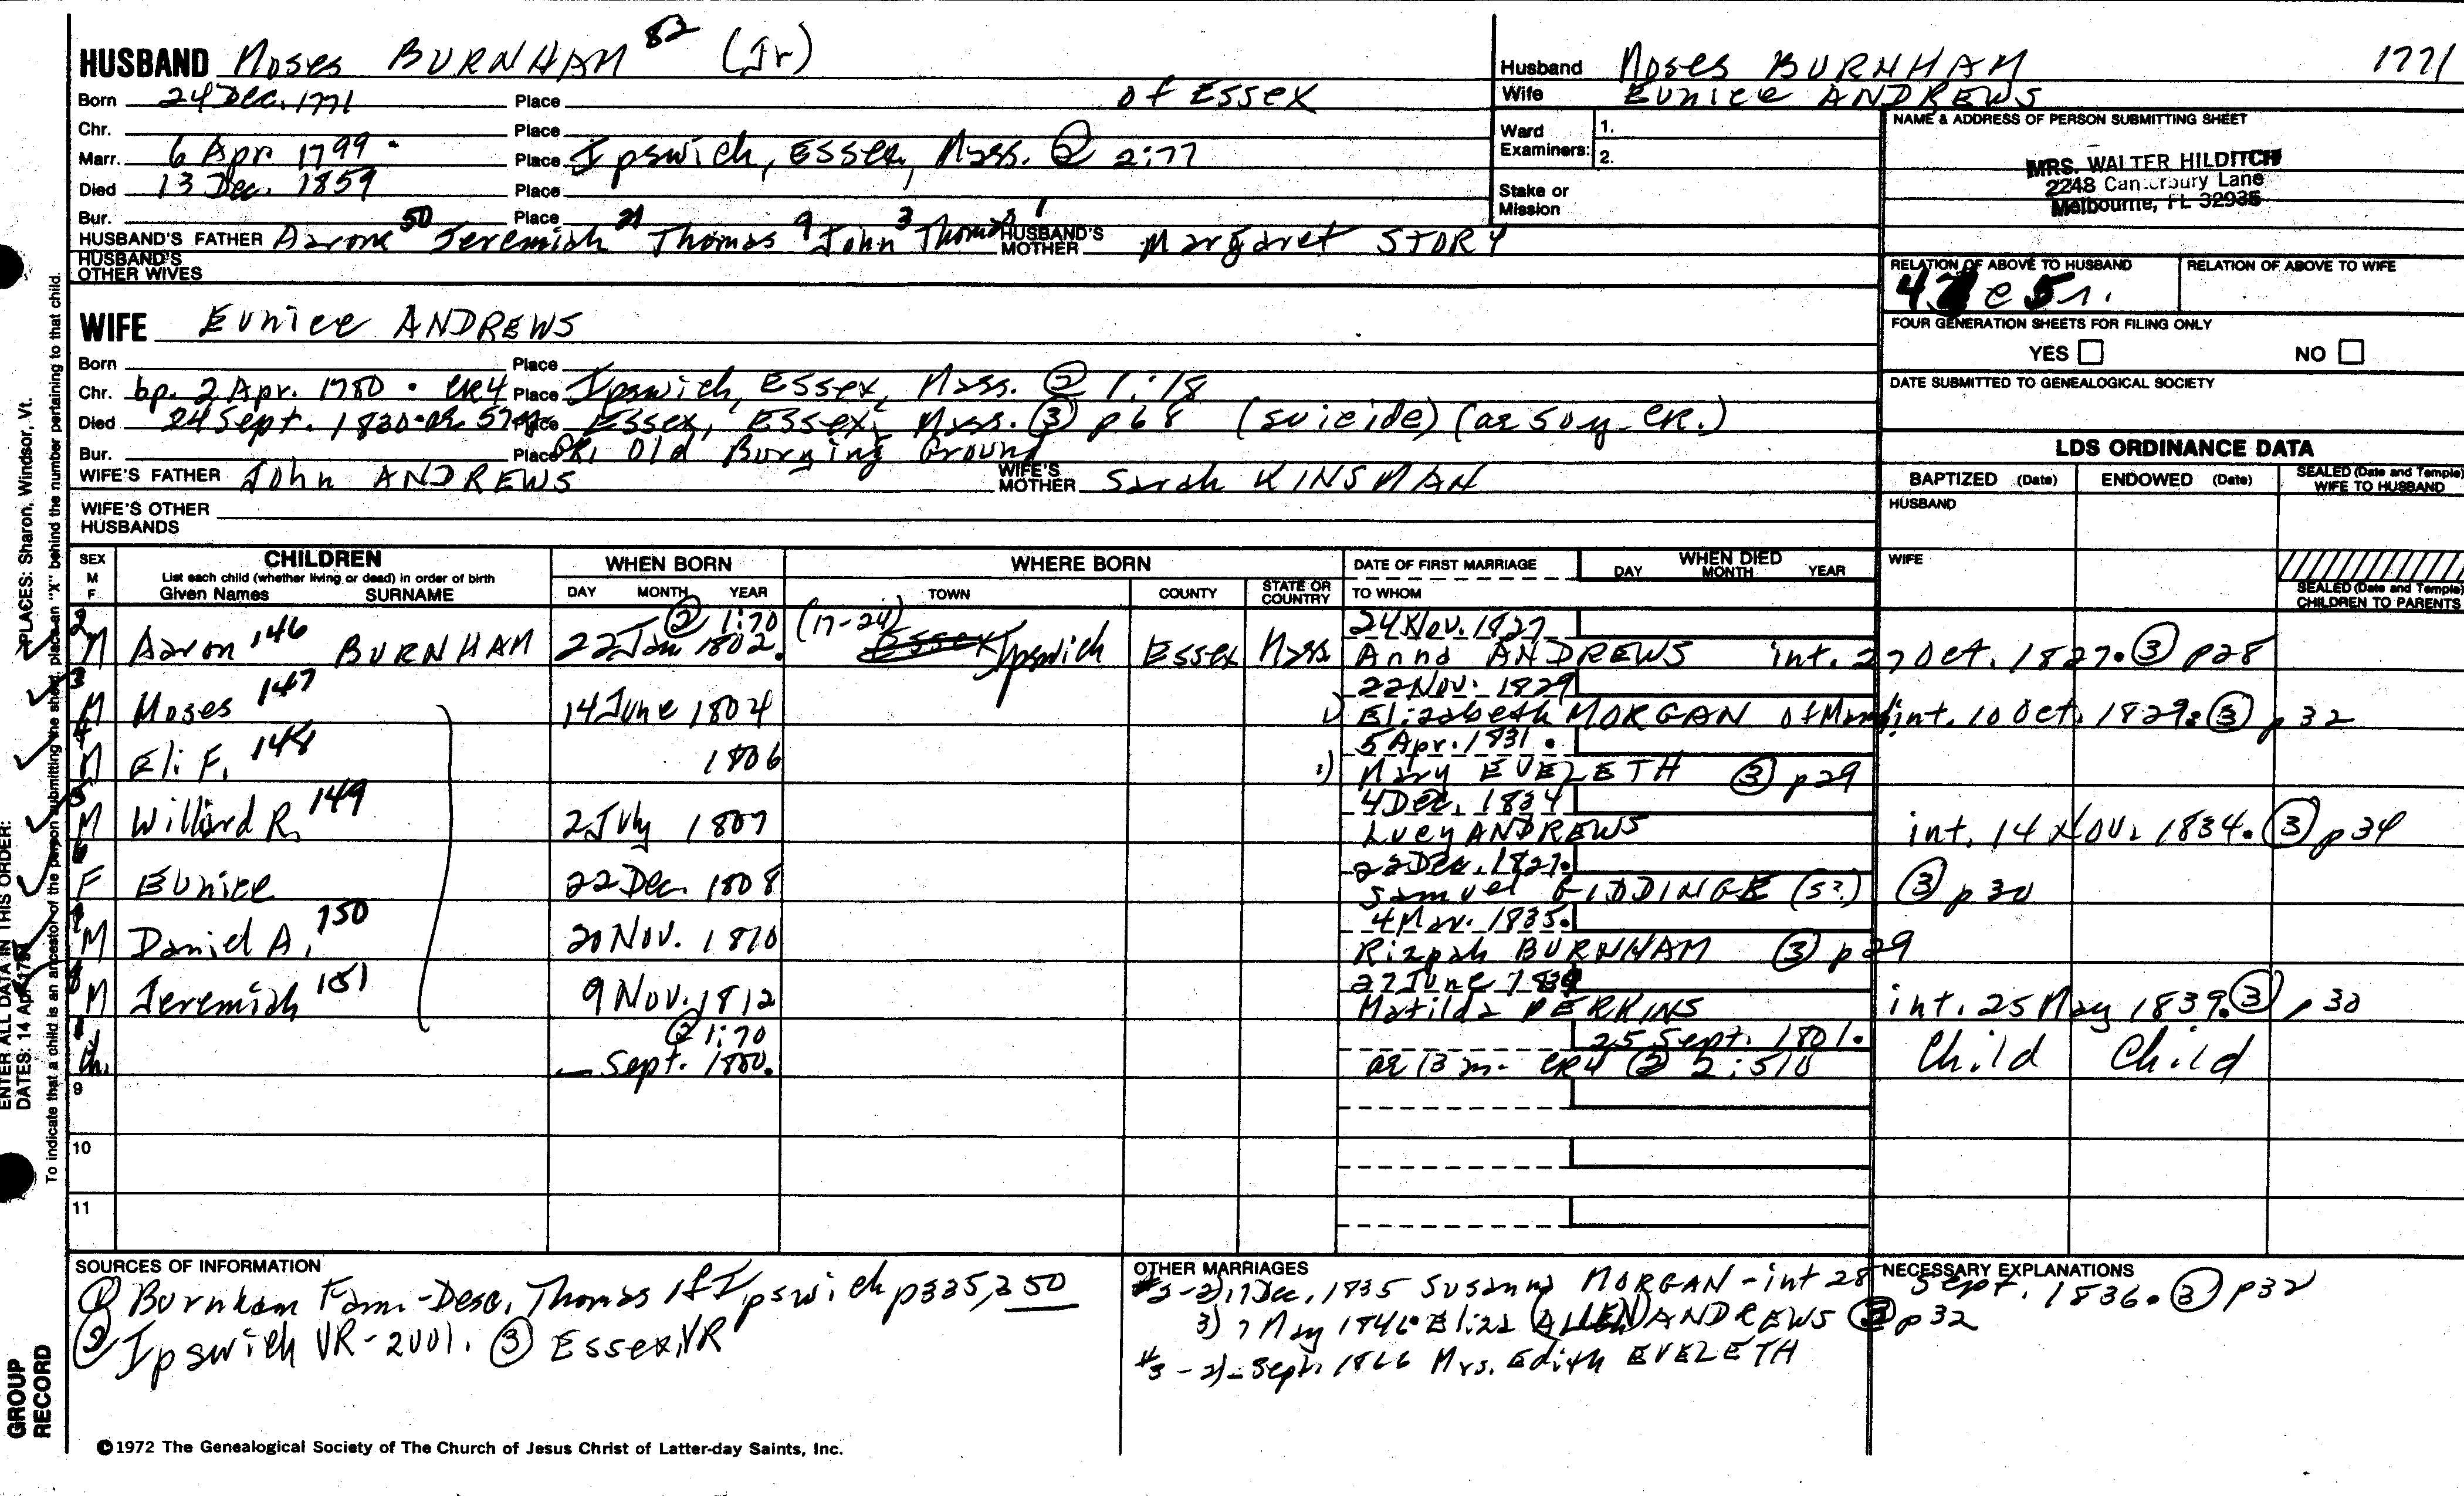 HUSBAND Moses BURNHAM 82 (Jr)
Born 24 Dec. 1771 Place of Essex
Chr. Place
Marr. 6 Apr. 1799. Place Ipswich, Essex, Mass. ② 2:77
Died 13 Dec. 1859 Place
Bur. Place
HUSBAND'S FATHER Aaron 50 Jeremiah 21 Thomas 9 John 3 Thomas 1 HUSBAND'S MOTHER Margaret STORY
HUSBAND'S OTHER WIVES
WIFE Eunice ANDREWS
Born Place
Chr. bp. 2 Apr. 1780. CR4 Place Ipswich, Essex, Mass. ② 1:18
Died 24 Sept. 1830. Place Essex, Essex, Mass. ③ p68 (suicide) (ae 50y. CR.)
Bur. Place Old Burying Ground
WIFE'S FATHER John ANDREWS WIFE'S MOTHER Sarah KINSMAN
WIFE'S OTHER HUSBANDS
Husband Moses BURNHAM 1771
Wife Eunice ANDREWS
Ward Examiners: 1.
2.
Stake or Mission
NAME & ADDRESS OF PERSON SUBMITTING SHEET
MRS. WALTER HILDITCH
2248 Canterbury Lane
Melbourne, FL 32935
RELATION OF ABOVE TO HUSBAND RELATION OF ABOVE TO WIFE
c 5 r.
FOUR GENERATION SHEETS FOR FILING ONLY
YES NO
DATE SUBMITTED TO GENEALOGICAL SOCIETY
LDS ORDINANCE DATA
BAPTIZED (Date) ENDOWED (Date) SEALED (Date and Temple) WIFE TO HUSBAND
HUSBAND
WIFE
SEALED (Date and Temple) CHILDREN TO PARENTS
SEX M F CHILDREN List each child (whether living or dead) in order of birth Given Names SURNAME
WHEN BORN DAY MONTH YEAR
WHERE BORN TOWN COUNTY STATE OR COUNTRY
DATE OF FIRST MARRIAGE TO WHOM
WHEN DIED DAY MONTH YEAR
② 1:70 (17-24) 24 Nov. 1827
2 M Aaron 146 BURNHAM 22 Jan 1802. Essex Ipswich Essex Mass. Anna ANDREWS int. 27 Oct. 1827. ③ p28
22 Nov. 1829
3 M Moses 147 14 June 1804 1) Elizabeth MORGAN of int. 10 Oct. 1829. ③ p32
5 Apr. 1831.
4 M Eli F. 148 1806 1) Mary EVELETH ③ p29
4 Dec. 1834
5 M Willard R. 149 2 July 1807 Lucy ANDREWS int. 14 Nov. 1834. ③ p34
22 Dec. 1827.
6 F Eunice 22 Dec. 1808 Samuel GIDDINGE (s?) ③ p30
4 Mar. 1835.
7 M Daniel A. 150 20 Nov. 1810 Rizpah BURNHAM ③ p29
27 June 1839
8 M Jeremiah 151 9 Nov. 1812 Matilda PERKINS int. 25 May 1839. ③ p30
② 1:70 25 Sept. 1801.
1 Ch. — Sept. 1800. ae 13 m. CR4 ② 2:510 Child Child
9
10
11
SOURCES OF INFORMATION
① Burnham Fam.-Desc. Thomas 1 of Ipswich p335, 350
② Ipswich VR - 2 vol. ③ Essex VR
OTHER MARRIAGES
2) 17 Dec. 1835 Susanna MORGAN - int 28 Sept. 1836. ③ p32
3) 7 May 1846. Eliza (ALLEN) ANDREWS ③ p32
2) — Sept. 1866 Mrs. Edith EVELETH
NECESSARY EXPLANATIONS
©1972 The Genealogical Society of The Church of Jesus Christ of Latter-day Saints, Inc.
GROUP RECORD
ENTER ALL DATA IN THIS ORDER:
DATES: 14 Apr 1794
PLACES: Sharon, Windsor, Vt.
To indicate that a child is an ancestor of the person submitting the sheet, place an "X" behind the number pertaining to that child.